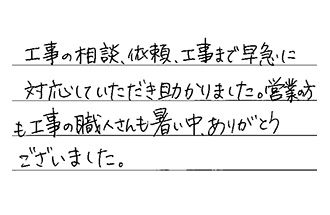 工事の相談、依頼、工事まで早急に
対応していただき助かりました。営業の方
も工事の職人さんも暑い中、ありがとう
ございました。